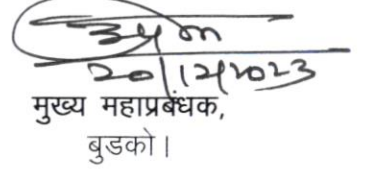 20/12/2023
मुख्य महाप्रबंधक,
बुडको।